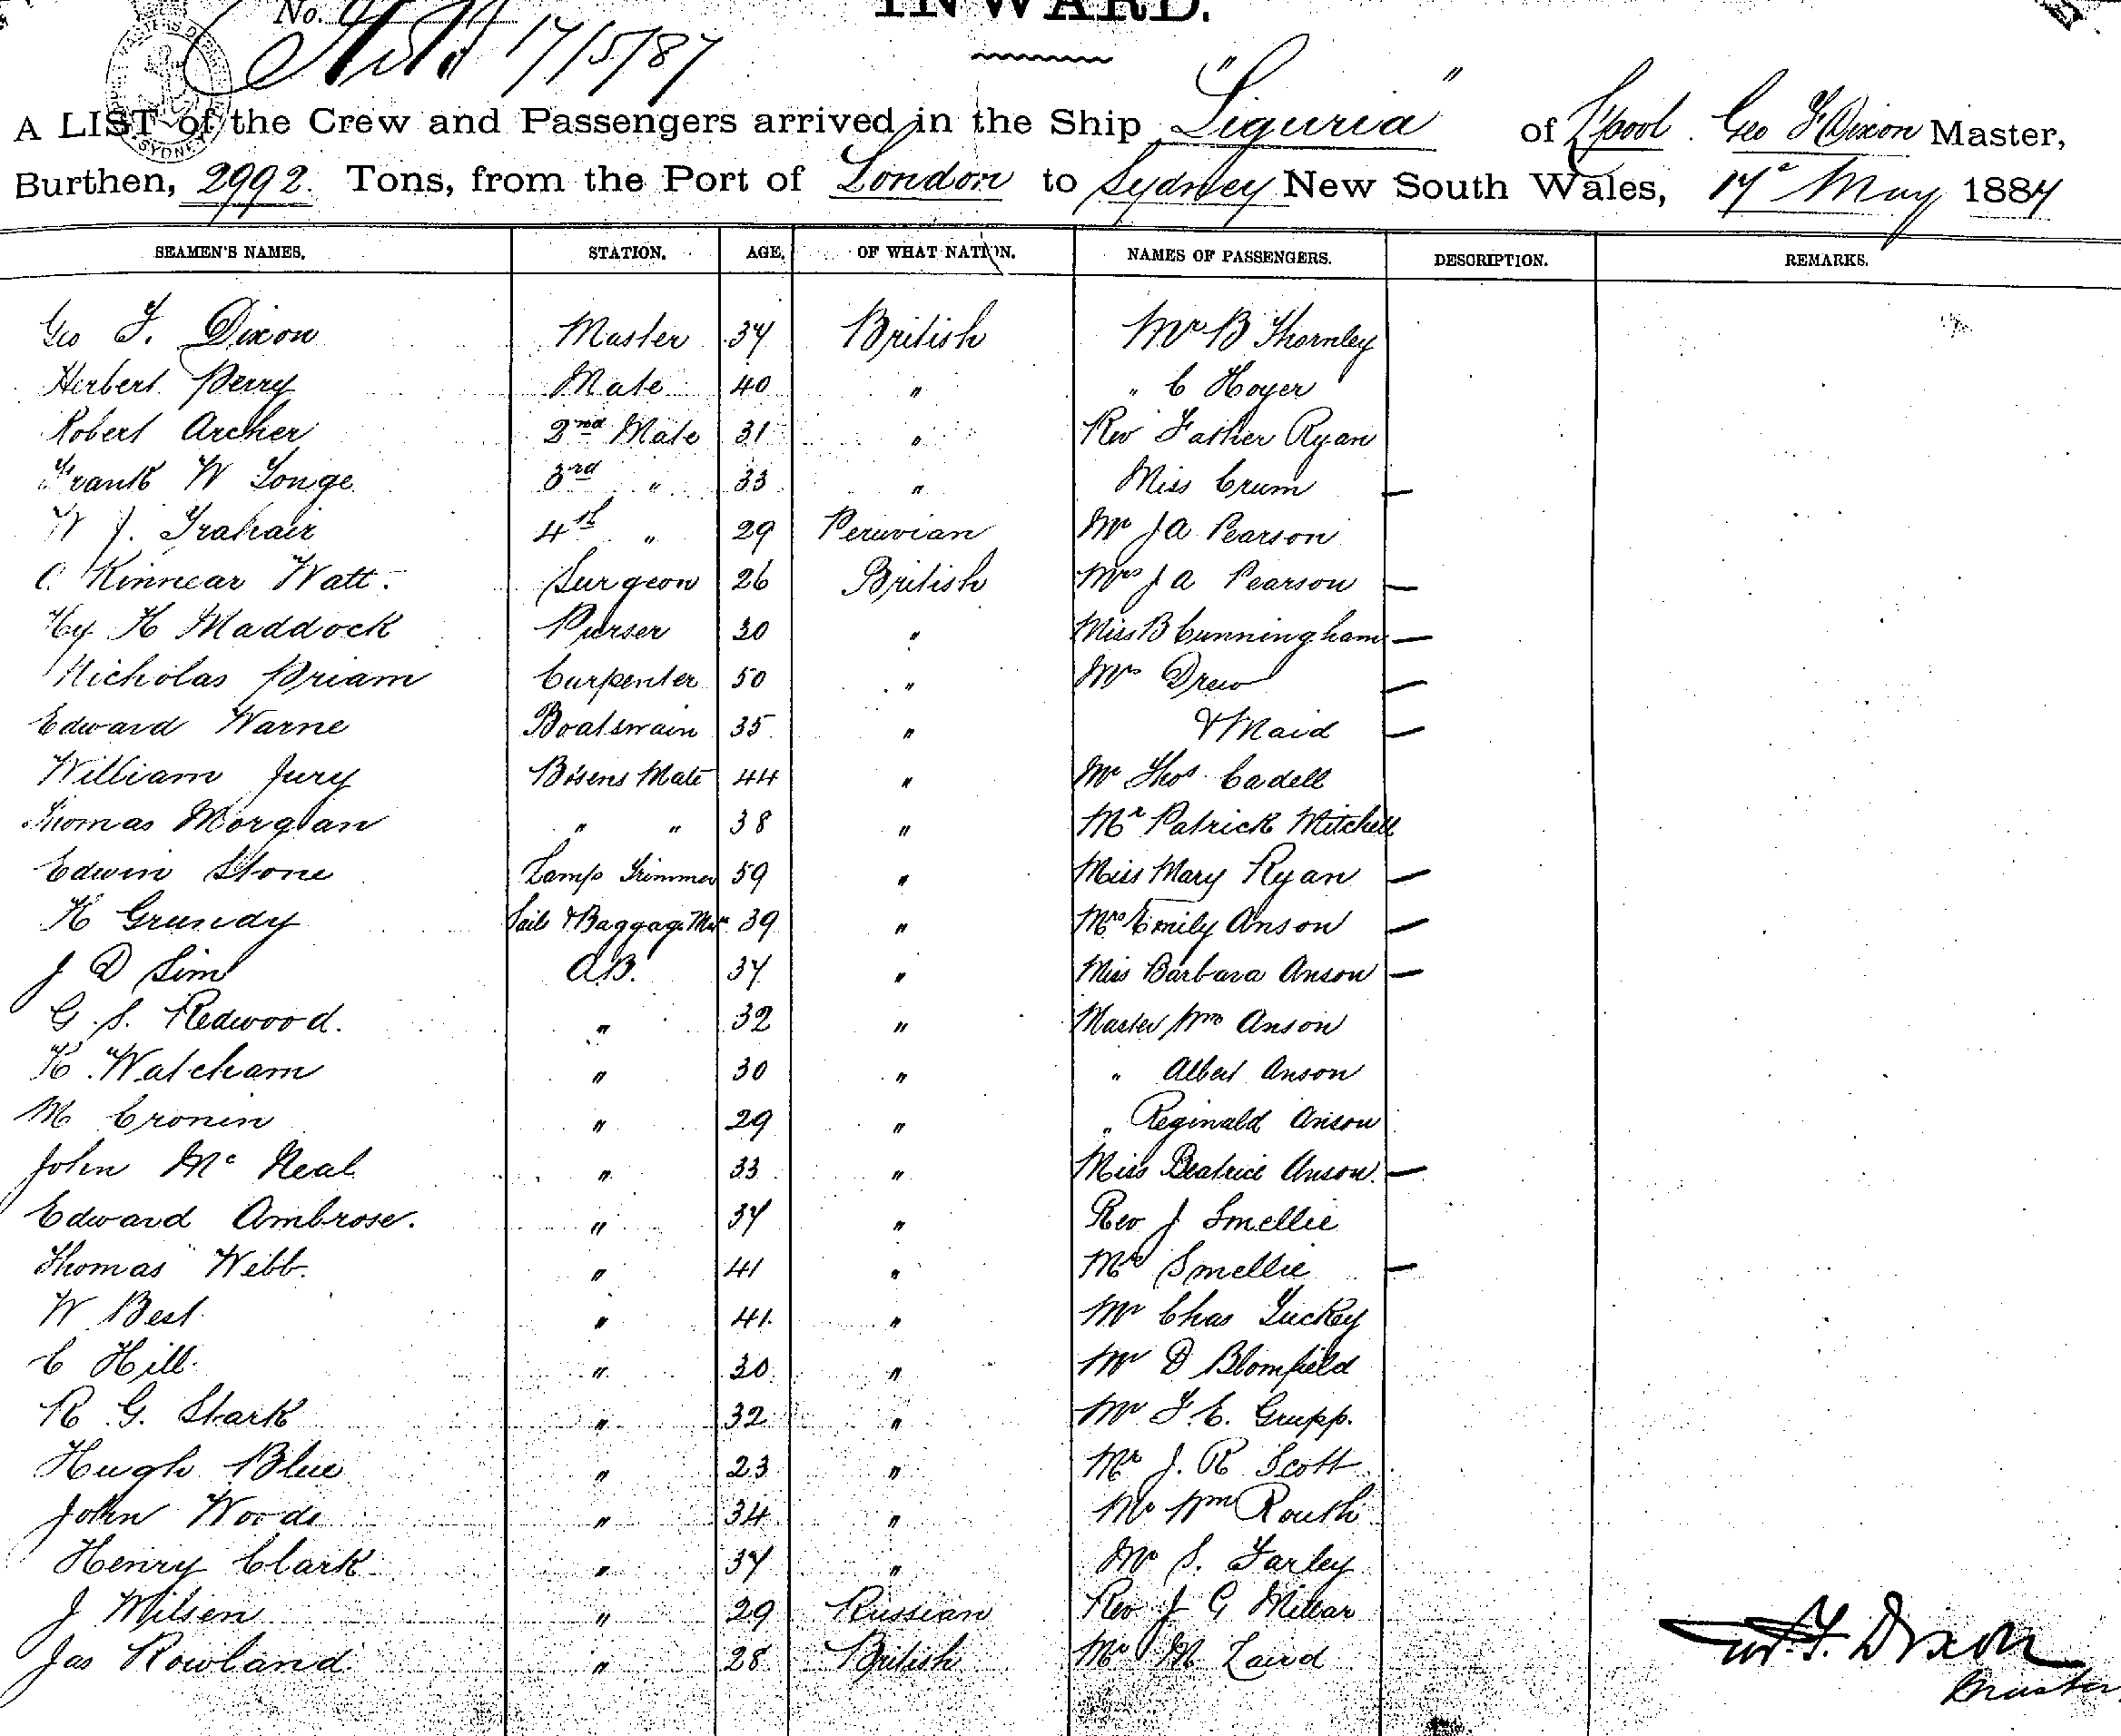 No.
INWARD.
17/5/87
A LIST of the Crew and Passengers arrived in the Ship "Liguria" of L'pool. Geo F Dixon Master,
Burthen, 2992. Tons, from the Port of London to Sydney New South Wales, 17th May 1887
SEAMEN'S NAMES. STATION. AGE. OF WHAT NATION. NAMES OF PASSENGERS. DESCRIPTION. REMARKS.
Geo F. Dixon Master 37 British Mr B Thornley
Herbert Perry Mate 40 " " C Hoyer
Robert Archer 2nd Mate 31 " Rev Father Ryan
Frank W Longe 3rd " 33 " Miss Crum —
W J. Trahair 4th " 29 Peruvian Mr J A Pearson
C. Kinnear Watt. Surgeon 26 British Mrs J A Pearson —
Hy H Maddock Purser 30 " Miss B Cunningham —
Nicholas Priam Carpenter 50 " Mrs Drew —
Edward Warne Boatswain 35 " & Maid —
William Jury Bosens Mate 44 " Mr Thos Cadell
Thomas Morgan " " 38 " Mr Patrick Mitchell
Edwin Stone Lamp Trimmer 59 " Miss Mary Ryan —
H Grundy Sails & Baggage Man 39 " Mrs Emily Anson —
J D Sim A.B. 37 " Miss Barbara Anson —
G. S. Redwood. " 32 " Master Wm Anson
H. Watcham " 30 " " Albert Anson
M Cronin " 29 " " Reginald Anson
John Mc Neal " 33 " Miss Beatrice Anson. —
Edward Ambrose. " 37 " Rev J Smellie
Thomas Webb. " 41 " Mrs Smellie —
W Best " 41. " Mr Chas Tuckey
C Hill. " 30 " Mr D Blomfield
R G. Stark " 32 " Mr F. E. Grupp.
Hugh Blue " 23 " Mr J. R Scott
John Woods " 34 " Mr Wm Routh
Henry Clark " 37 " Mr S. Farley
J Wilsen " 29 Russian Rev J G Millar
Jas Rowland " 28 British Mr M Laird
Geo. F. Dixon
Master